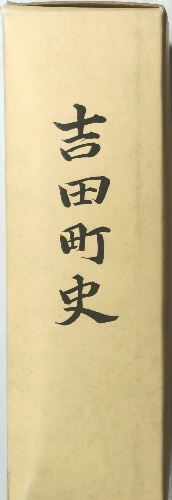 吉田町史